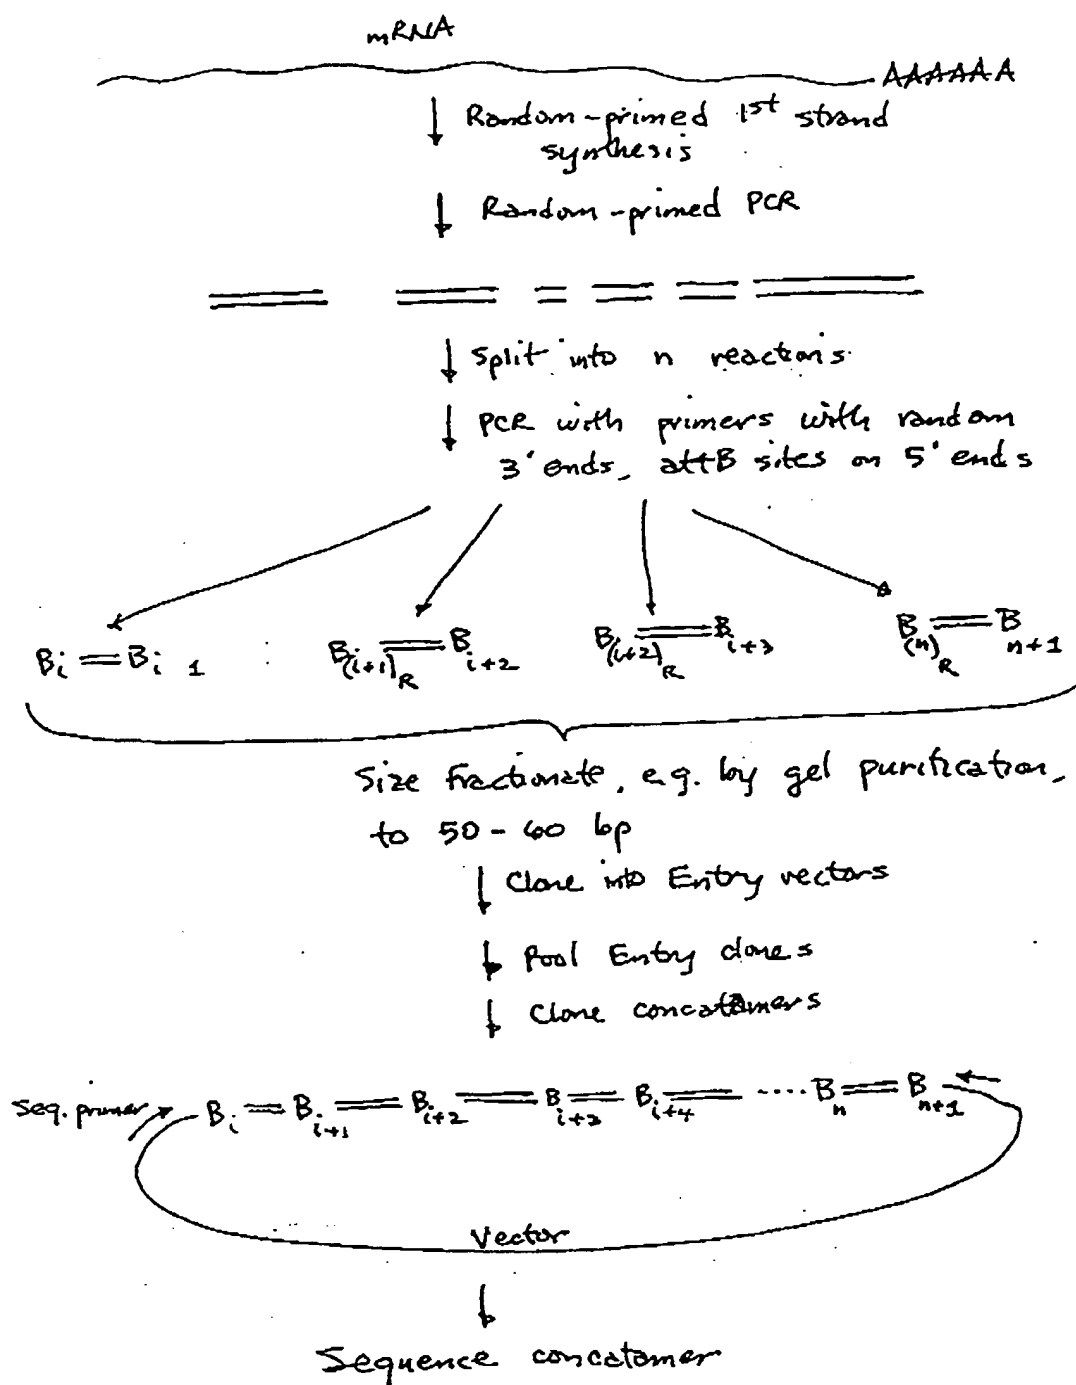 mRNA
AAAAAA
Random-primed 1st strand
synthesis
Random-primed PCR
Split into n reactions.
PCR with primers with random
3' ends, attB sites on 5' ends
Bi = Bi 1 B(i+1)R = Bi+2 B(i+2)R = Bi+3 B(n)R = Bn+1
Size fractionate, e.g. by gel purification,
to 50-60 bp
Clone into Entry vectors
Pool Entry clones
Clone concatamers
Seq. primer Bi = Bi+1 = Bi+2 = Bi+3 = Bi+4 = .... Bn = Bn+1
Vector
Sequence concatamer